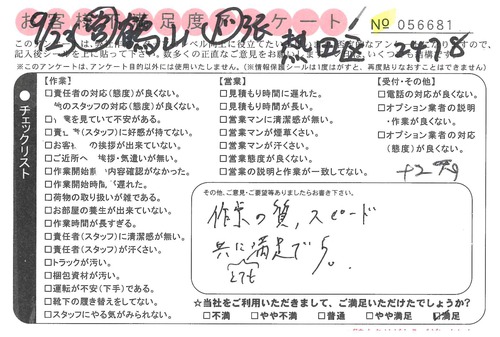 お客様満足度アンケート
№ 056681
9/23
熱田区
2478
※このアンケートは、アンケート目的以外には使用いたしません。(※情報保護シールは1度はがすと、再度貼りなおすことはできません)
チェックリスト
【作業】
□責任者の対応(態度)が良くない。
のスタッフの対応(態度)が良くない。
を見ていて不安がある。
(スタッフ)に好感が持てない。
挨拶が出来ていない。
□ご近所へ 挨拶・気遣いが無い。
□作業開始 内容確認がなかった。
□作業開始時間 遅れた。
□荷物の取り扱いが雑である。
□お部屋の養生が出来ていない。
□作業時間が長すぎる。
□責任者(スタッフ)に清潔感が無い。
□責任者(スタッフ)が汗くさい。
□トラックが汚い。
□梱包資材が汚い。
□運転が不安(下手)である。
□靴下の履き替えをしてない。
□スタッフにやる気がみられない。
【営業】
□見積もり時間に遅れた。
□見積もり時間が長い。
□営業マンに清潔感が無い。
□営業マンが煙草くさい。
□営業マンが汗くさい。
□営業態度が良くない。
□営業の説明と作業が一致してない。
【受付・その他】
□電話の対応が良くない。
□オプション業者の説明
・作業が良くない。
□オプション業者の対応
(態度)が良くない。
その他、ご意見・ご要望等ありましたらお書き下さい。
作業の質、スピード
共に満足です。
とても
☆当社をご利用いただきまして、ご満足いただけたでしょうか?
□不満 □やや不満 □普通 □やや満足 満足